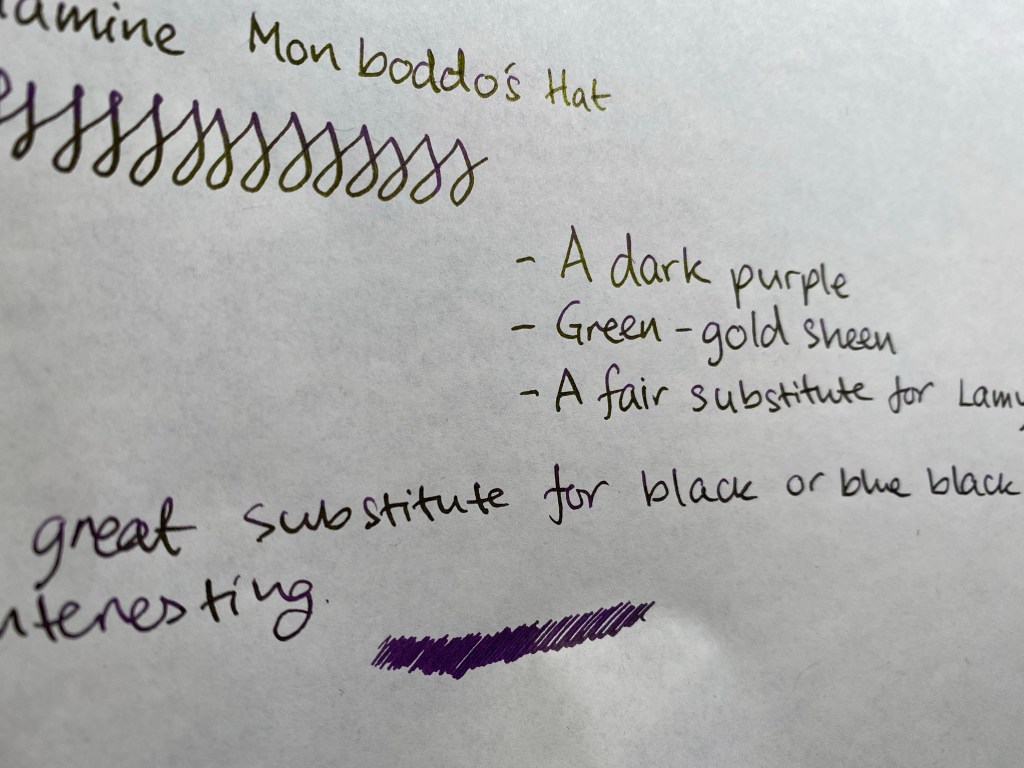 amine Monboddo's Hat
- A dark purple
- Green-gold sheen
- A fair substitute for Lamy
great substitute for black or blue black
nteresting.